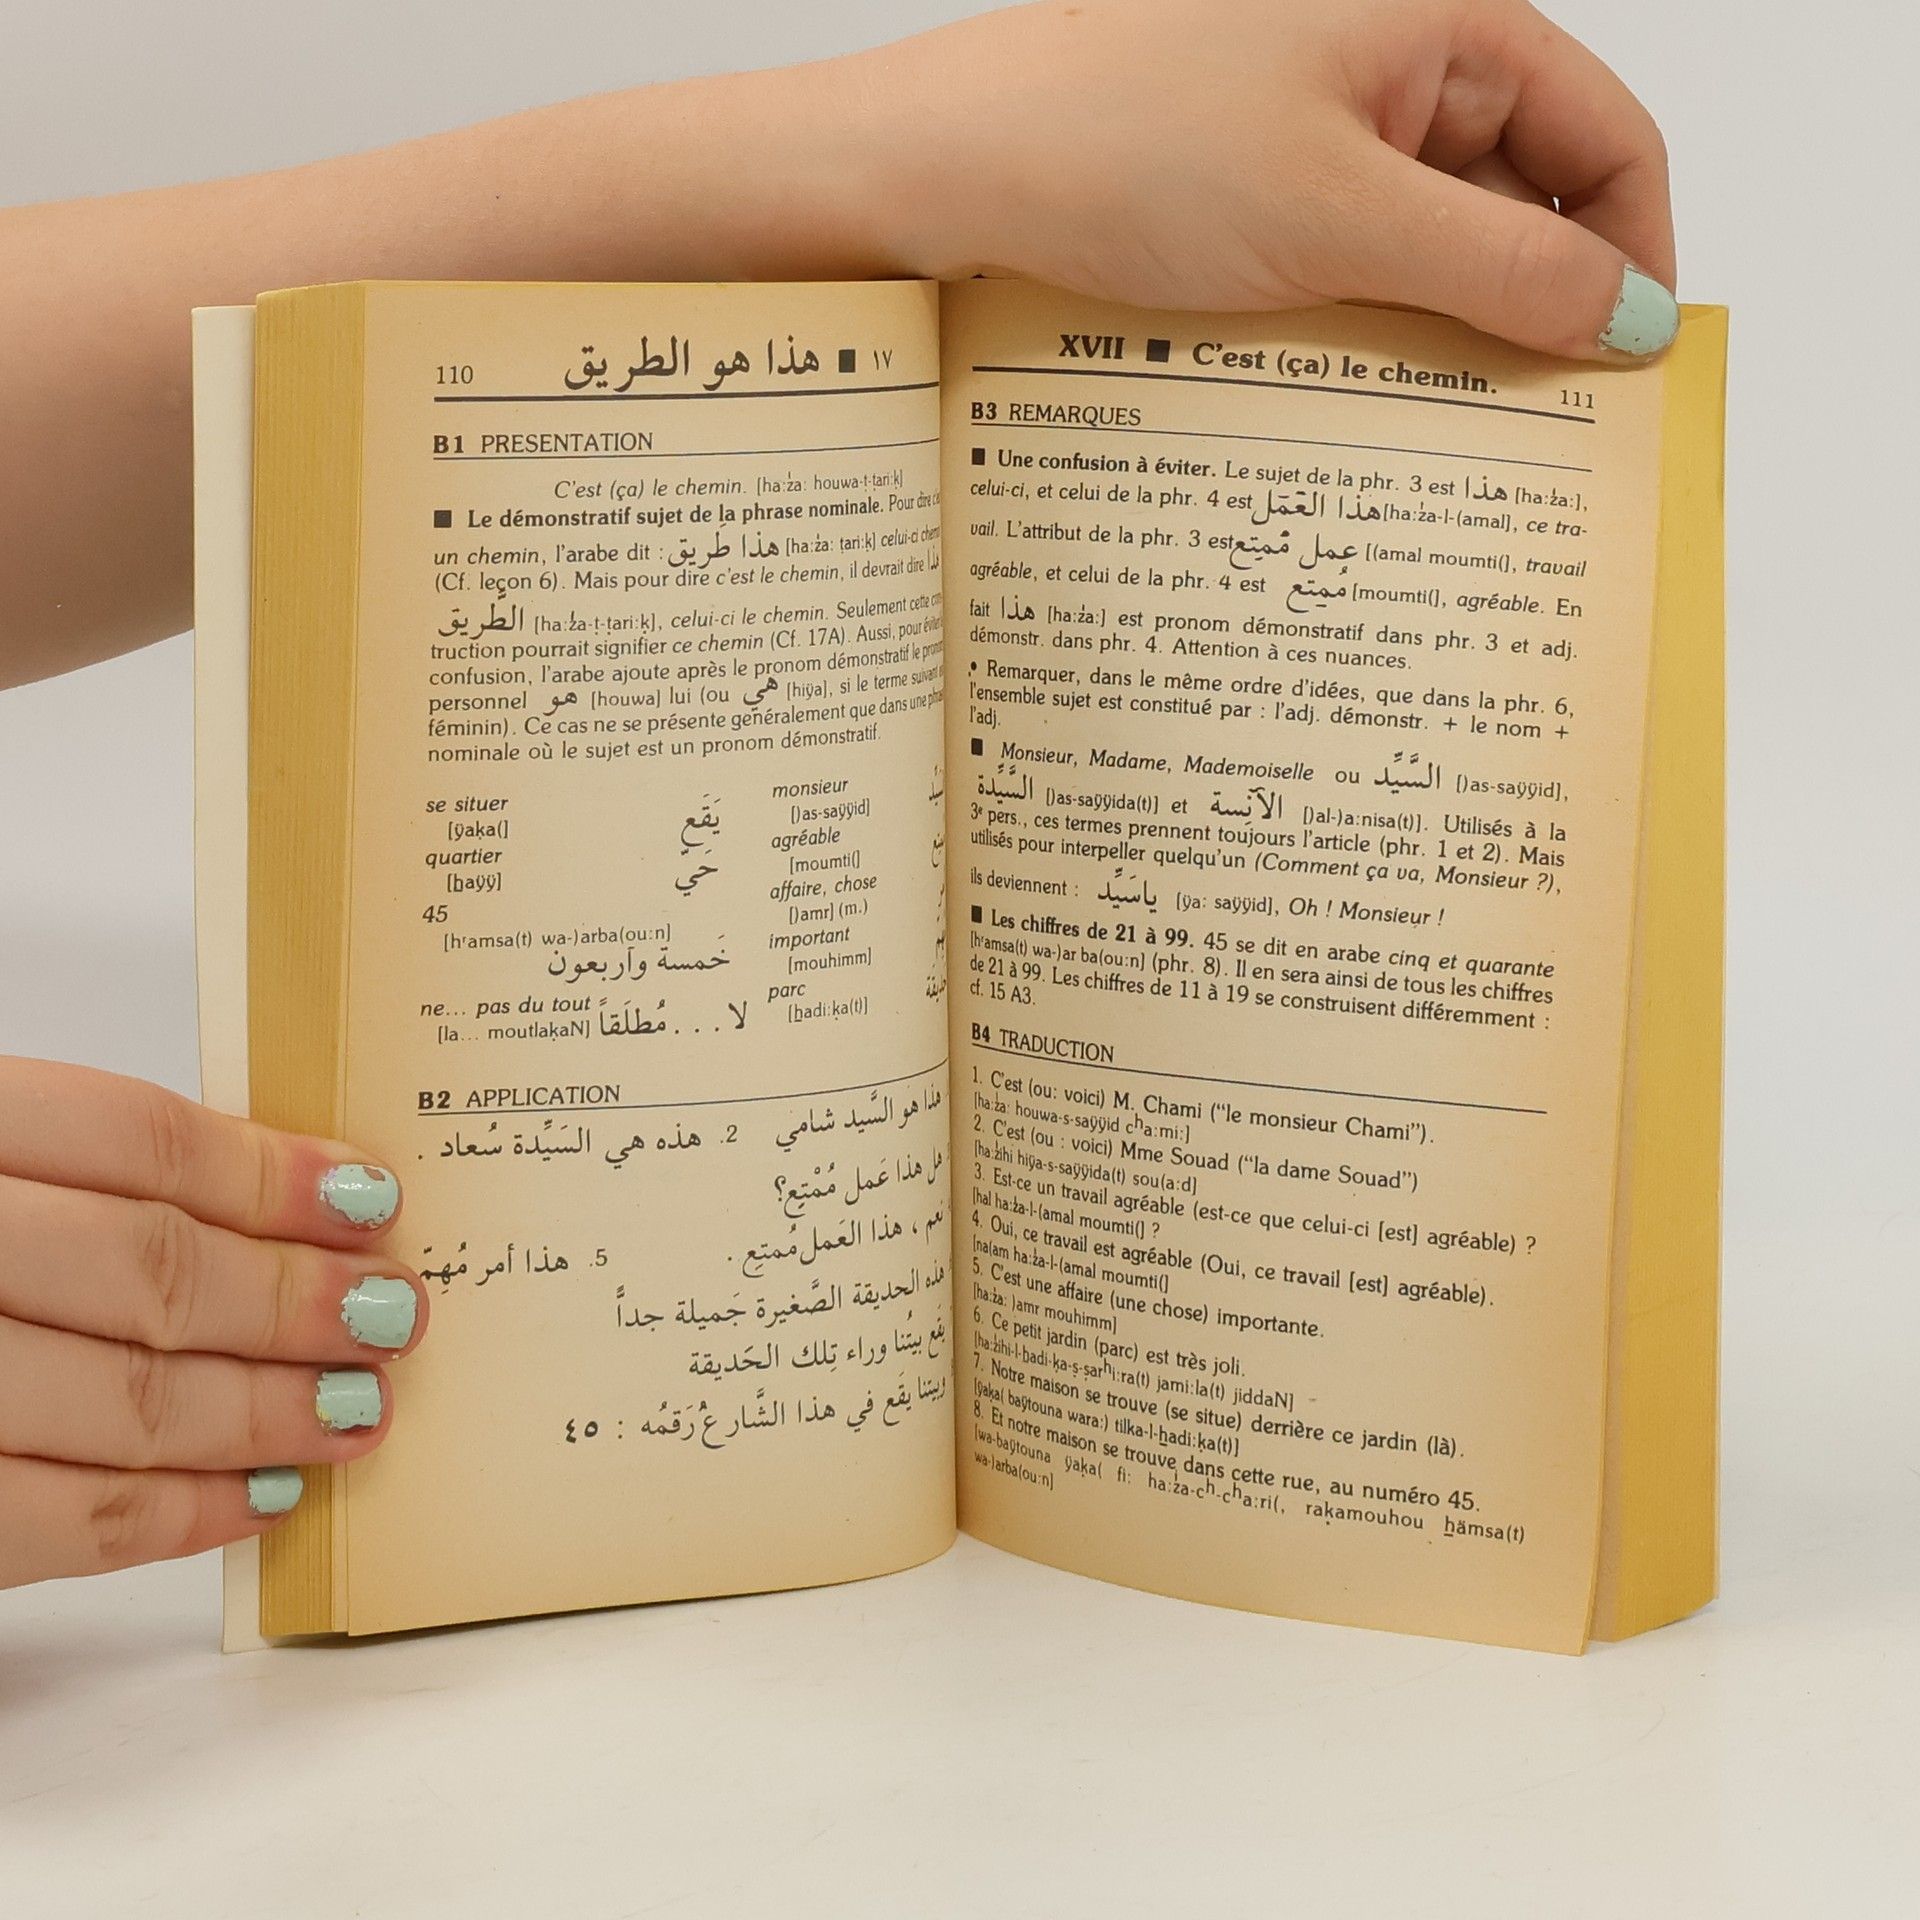 110 هذا هو الطريق ■ ١٧
B1 PRESENTATION
C'est (ça) le chemin. [ha:ża: houwa-ṭ-ṭari:ḳ]
■ Le démonstratif sujet de la phrase nominale. Pour dire c'est
un chemin, l'arabe dit : هذا طَريق [ha:ża: ṭari:ḳ] celui-ci chemin
(Cf. leçon 6). Mais pour dire c'est le chemin, il devrait dire هذا
الطَّريق [ha:ża-ṭ-ṭari:ḳ], celui-ci le chemin. Seulement cette cons-
truction pourrait signifier ce chemin (Cf. 17A). Aussi, pour éviter
confusion, l'arabe ajoute après le pronom démonstratif le pronom
personnel هو [houwa] lui (ou هي [hiÿa], si le terme suivant
féminin). Ce cas ne se présente généralement que dans une phrase
nominale où le sujet est un pronom démonstratif.
se situer
[ÿaḳa(] يَقَع
quartier
[ẖaÿÿ] حَيّ
45
[hʳamsa(t) wa-)arba(ou:n]
خَمسة وآربعون
ne... pas du tout
[la... moutlaḳaN] لا...مُطلَقاً
monsieur
[)as-saÿÿid]
agréable
[moumti(]
affaire, chose
[)amr] (m.)
important
[mouhimm]
parc
[ẖadi:ḳa(t)]
B2 APPLICATION
هذا هو السَّيد شامي 2. هذه هي السَيِّدة سُعاد .
هل هذا عَمل مُمْتِع؟
نعم ، هذا العَمل مُمتِع . 5. هذا أمر مُهِمّ
هذه الحديقة الصَّغيرة جَميلة جداًّ
يَقَع بيتُنا وراء تِلك الحَديقة
وبيتنا يقَع في هذا الشَّارعُ رَقمُه : ٤٥
XVII ■ C'est (ça) le chemin. 111
B3 REMARQUES
■ Une confusion à éviter. Le sujet de la phr. 3 est هذا [ha:ża:],
celui-ci, et celui de la phr. 4 est هذا العَمَل [ha:ża-l-(amal], ce tra-
vail. L'attribut de la phr. 3 est عمل مُمتِع [(amal moumti(], travail
agréable, et celui de la phr. 4 est مُمتِع [moumti(], agréable. En
fait هذا [ha:ża:] est pronom démonstratif dans phr. 3 et adj.
démonstr. dans phr. 4. Attention à ces nuances.
• Remarquer, dans le même ordre d'idées, que dans la phr. 6,
l'ensemble sujet est constitué par : l'adj. démonstr. + le nom +
l'adj.
■ Monsieur, Madame, Mademoiselle ou السَّيِّد [)as-saÿÿid],
السَّيِّدة [)as-saÿÿida(t)] et الآنِسة [)al-)a:nisa(t)]. Utilisés à la
3e pers., ces termes prennent toujours l'article (phr. 1 et 2). Mais
utilisés pour interpeller quelqu'un (Comment ça va, Monsieur ?),
ils deviennent : ياسَيِّد [ÿa: saÿÿid], Oh ! Monsieur !
■ Les chiffres de 21 à 99. 45 se dit en arabe cinq et quarante
[hʳamsa(t) wa-)ar ba(ou:n] (phr. 8). Il en sera ainsi de tous les chiffres
de 21 à 99. Les chiffres de 11 à 19 se construisent différemment :
cf. 15 A3.
B4 TRADUCTION
1. C'est (ou: voici) M. Chami ("le monsieur Chami").
[ha:ża: houwa-s-saÿÿid cʰa:mi:]
2. C'est (ou : voici) Mme Souad ("la dame Souad")
[ha:żihi hiÿa-s-saÿÿida(t) sou(a:d]
3. Est-ce un travail agréable (est-ce que celui-ci [est] agréable) ?
[hal ha:ża-l-(amal moumti(] ?
4. Oui, ce travail est agréable (Oui, ce travail [est] agréable).
[na(am ha:ża-l-(amal moumti(]
5. C'est une affaire (une chose) importante.
[ha:ża: )amr mouhimm]
6. Ce petit jardin (parc) est très joli.
[ha:żihi-l-ẖadi-ḳa-ṣ-ṣarʰi:ra(t) jami:la(t) jiddaN]
7. Notre maison se trouve (se situe) derrière ce jardin (là).
[ÿaḳa( baÿtouna wara:) tilka-l-ẖadi:ḳa(t)]
8. Et notre maison se trouve dans cette rue, au numéro 45.
[wa-baÿtouna ÿaḳa( fi: ha:ża-cʰ-cʰa:ri(, raḳamouhou ẖämsa(t)
wa-)arba(ou:n]